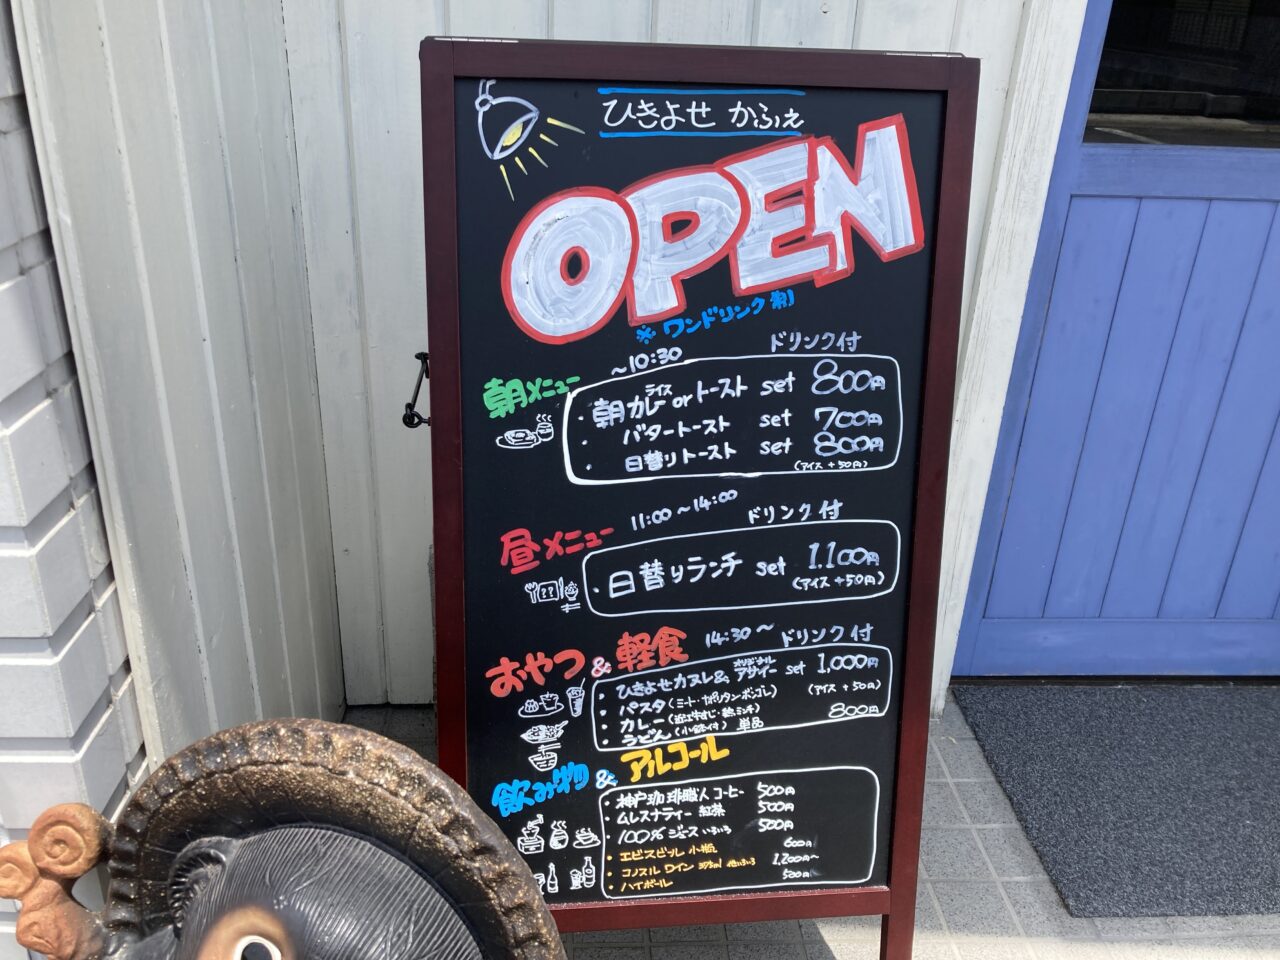 ひきよせ かふぇ
OPEN
※ ワンドリンク制
朝メニュー ～10:30 ドリンク付
・朝カレー ライス or トースト set 800円
・バタートースト set 700円
・日替りトースト set 800円
(アイス +50円)
昼メニュー 11:00～14:00 ドリンク付
・日替りランチ set 1.100円
(アイス +50円)
おやつ & 軽食 14:30～ ドリンク付
・ひきよせカヌレ& オリジナル アサイー set 1,000円
・パスタ(ミート・ナポリタン・ボンゴレ) (アイス +50円)
・カレー(近江牛すじ・鶏ミンチ)
・うどん(小鉢付) 単品 800円
飲み物 & アルコール
・神戸珈琲職人コーヒー 500円
・ムレスナティー 紅茶 500円
・100% ジュース いろいろ 500円
・エビスビール 小瓶 600円
・コノスル ワイン 375ml 他いろいろ 1,200～
・ハイボール 500円